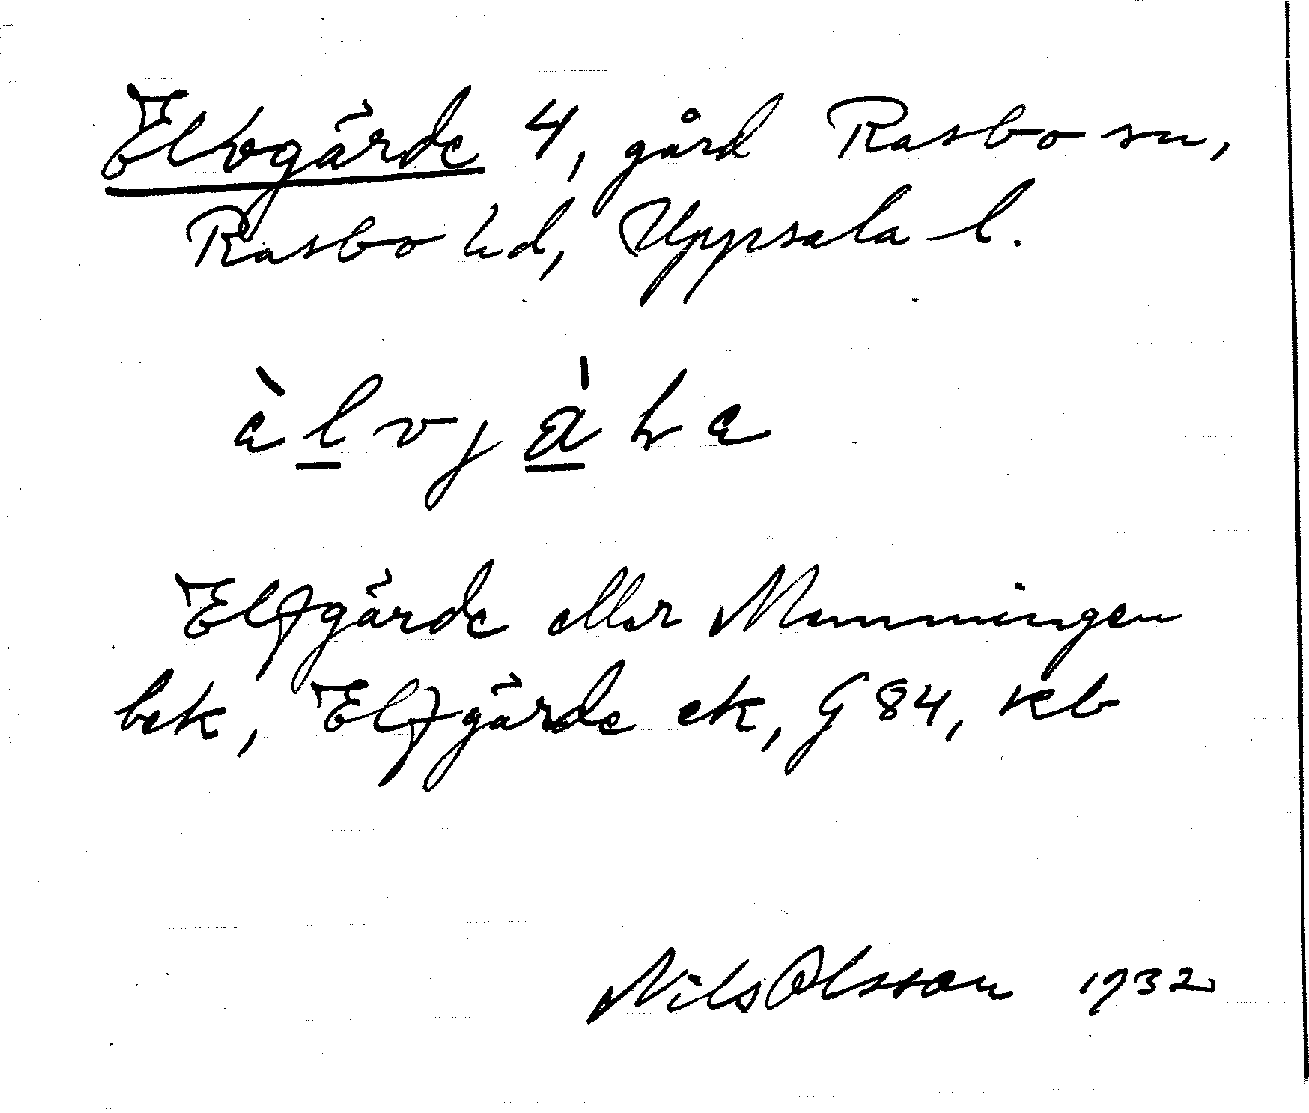 Elvgärde 4, gård Rasbo sn,
Rasbo hd, Uppsala l.
Elfgärde eller Mumningen
bek, Elfgärde ek, G 84, kb
Nils Olsson 1932